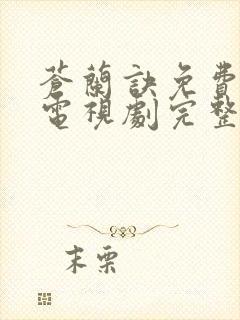 蒼蘭訣免費
電視劇完整
末栗